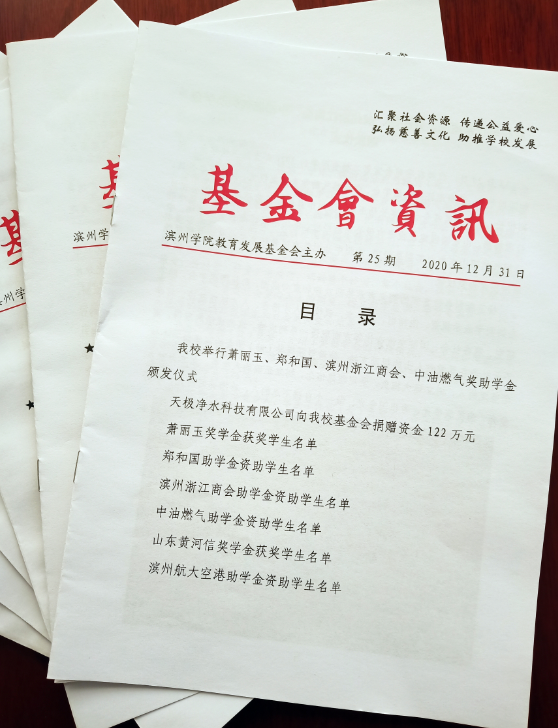 汇聚社会资源 传递公益爱心
弘扬慈善文化 助推学校发展
基金會資訊
滨州学院教育发展基金会主办 第25期 2020年12月31日
目 录
我校举行萧丽玉、郑和国、滨州浙江商会、中油燃气奖助学金
颁发仪式
天极净水科技有限公司向我校基金会捐赠资金122万元
萧丽玉奖学金获奖学生名单
郑和国助学金资助学生名单
滨州浙江商会助学金资助学生名单
中油燃气助学金资助学生名单
山东黄河信奖学金获奖学生名单
滨州航大空港助学金资助学生名单
基
滨州学
基
州学